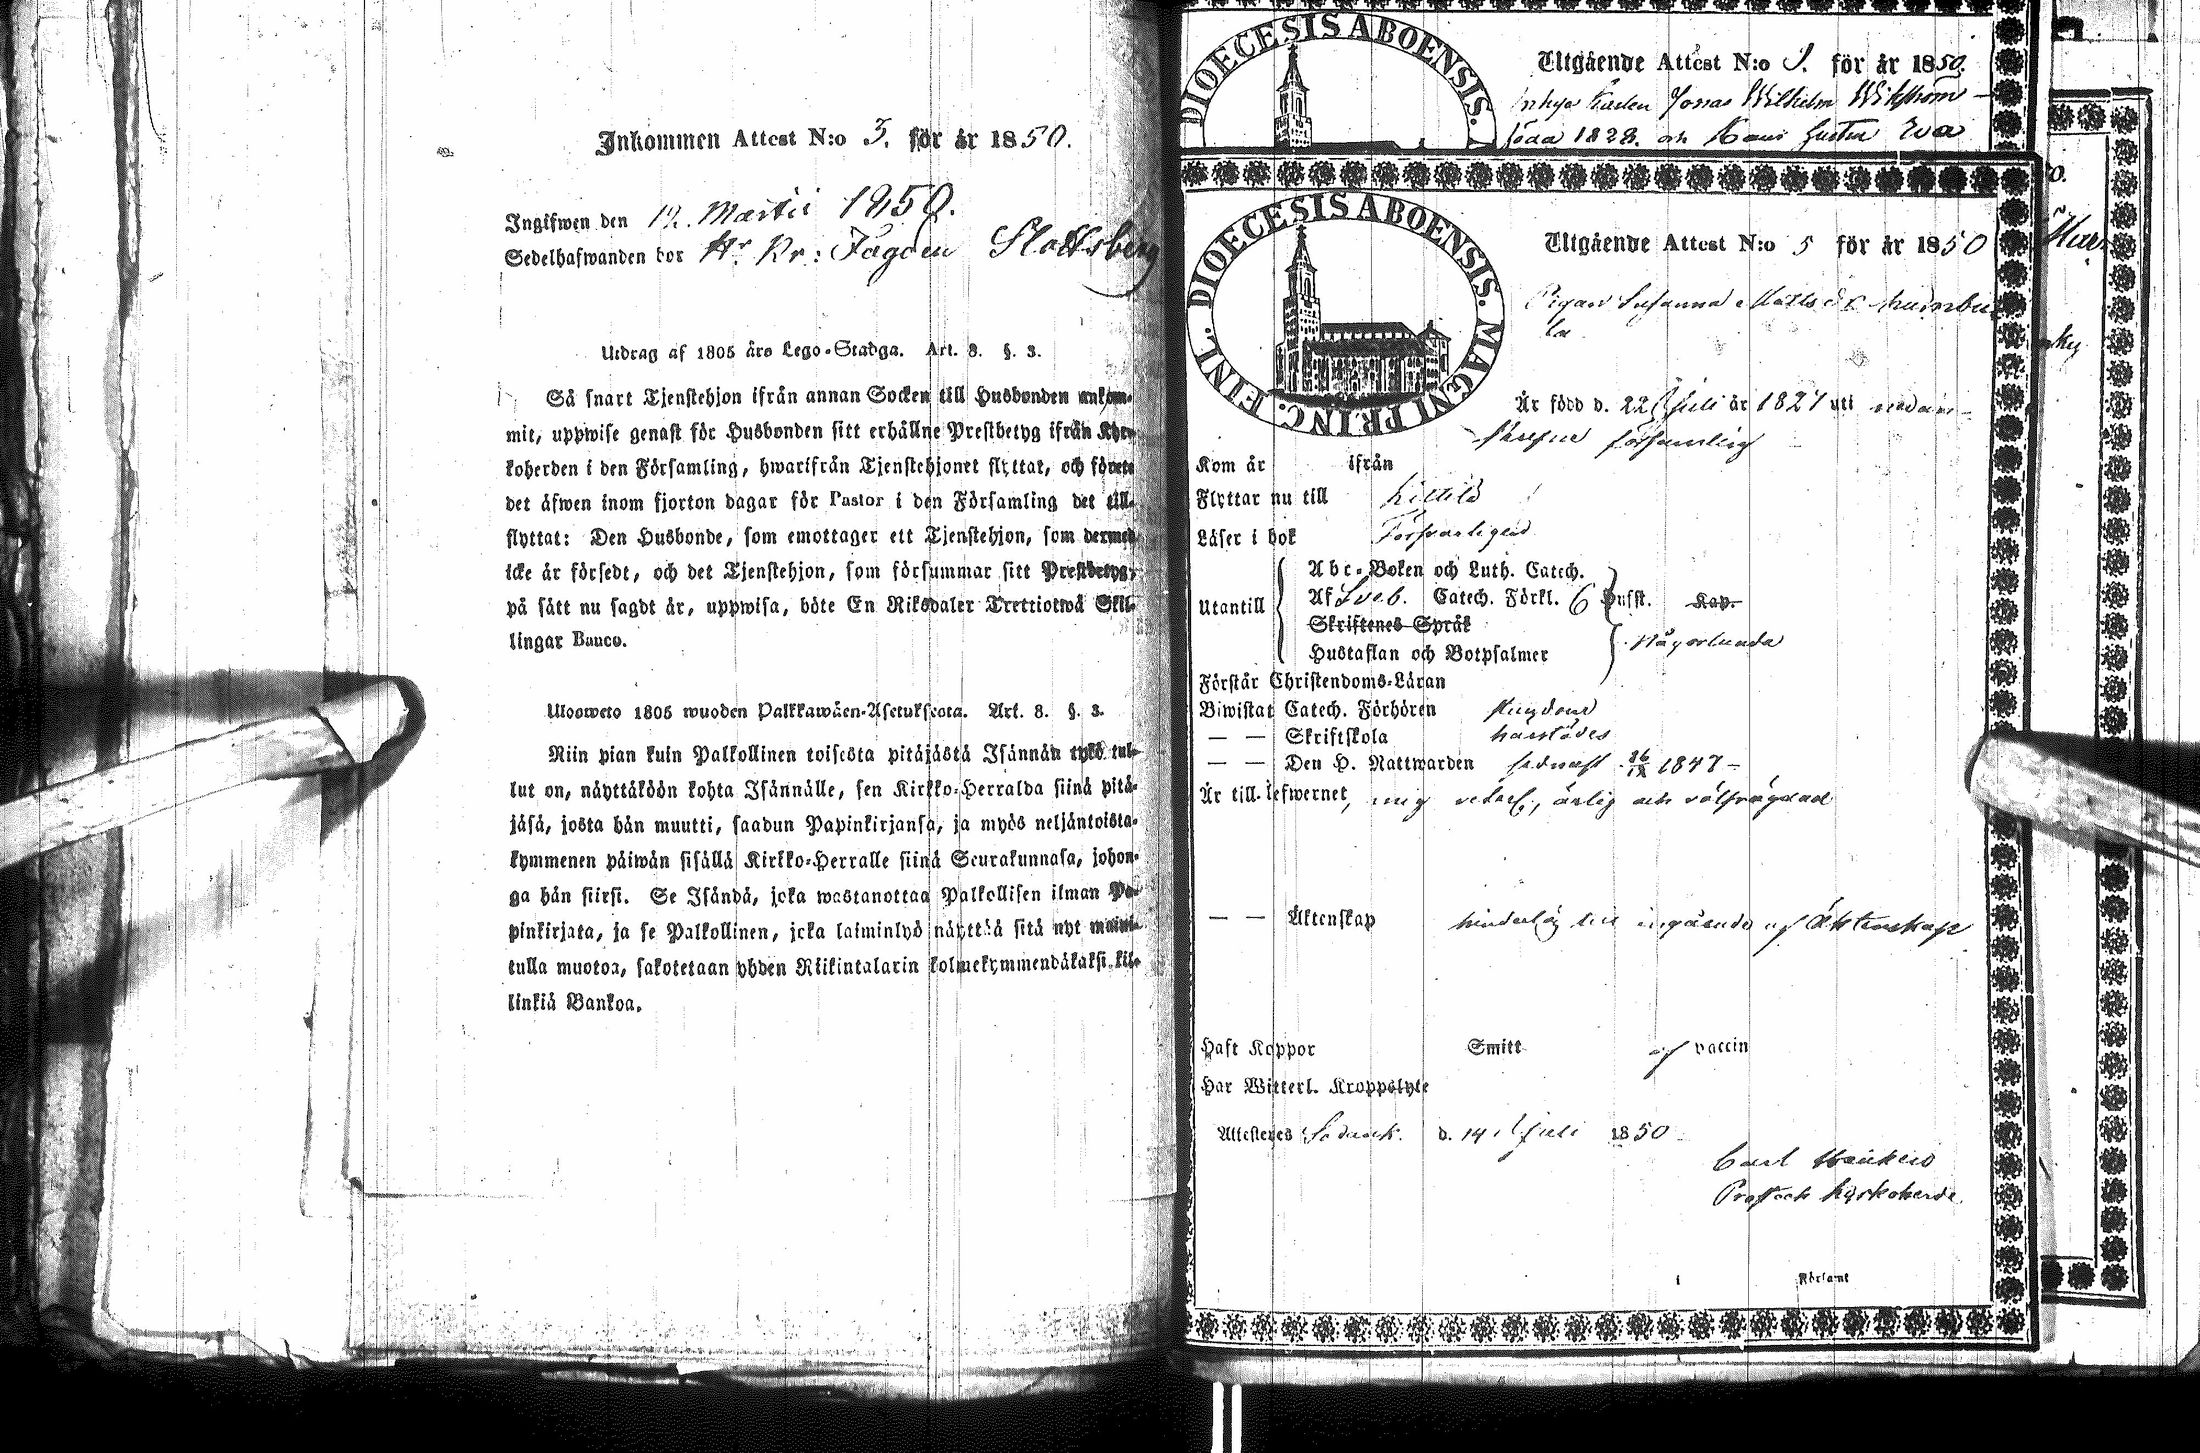 Inkommen Attest N:o 3. för år 1850.
Ingifwen den 12. Martii 1850.
Sedelhafwanden bor Hr Kr: Fogden
Utdrag af 1805 års Lego-Stadga. Art. 8. §. 3.
Så snart Tjenstehjon ifrån annan Socken till Husbonden ankom-
mit, uppwise genast för Husbonden sitt erhållne Prestbetyg ifrån Kyr-
koherden i den Församling, hwarifrån Tjenstehjonet flyttat, och förete
det äfwen inom fjorton dagar för Pastor i den Församling det till-
flyttat: Den Husbonde, som emottager ett Tjenstehjon, som dermed
icke är försedt, och det Tjenstehjon, som försummar sitt Prestbetyg,
på sätt nu sagdt är, uppwisa, böte En Riksdaler Trettiotwå Skil-
lingar Banco.
Ulosweto 1805 wuoden Palkkawäen-Asetuksesta. Art. 8. §. 3.
Niin pian kuin Palkollinen toisesta pitäjästä Isännän tykö tul-
lut on, näyttäköön kohta Isännälle, sen Kirkko-Herralda siinä pitä-
jäsä, josta hän muutti, saadun Papinkirjansa, ja myös neljäntoista-
kymmenen päiwän sisällä Kirkko-Herralle siinä Seurakunnasa, johon-
ga hän siirsi. Se Isändä, joka wastanottaa Palkollisen ilman Pa-
pinkirjata, ja se Palkollinen, joka laiminlyö näyttää sitä nyt maini-
tulla muotoa, sakotetaan yhden Riikintalarin kolmekymmendäkaksi kil-
linkiä Bankoa.
DIOECESIS ABOENSIS.
Utgående Attest N:o för år 1850.
Jonas Wilhelm Wikström
föda 1828. och Hans hustru Eva
DIOECESIS ABOENSIS. MAGNI PRINC. FINL.
Utgående Attest N:o 5 för år 1850
Pigan Susanna Matts dr
la
Är född d. 22 Juli år 1827 uti nedan-
församling
Kom år ifrån
Flyttar nu till Kittilä
Läser i bok Försvarligen
Abc-Boken och Luth. Catech.
Utantill Af Sveb. Catech. Förkl. 6 Hufst. Kap.
Skriftenes Språk
Hustaflan och Botpsalmer Någorlunda
Förstår Christendoms-Läran
Biwistat Catech. Förhören
— — Skriftskola
— — Den H. Nattwarden sednast 1847
Är till lefwernet, ärlig och välfrägdad
— — Äktenskap hinderlös till ingående af Äktenskap
Haft Koppor Smitt af vaccin
Har Witterl. Kroppslyte
Attesteres Sodank. d. 14 Juli 1850
Carl
Prost och kyrkoherde.